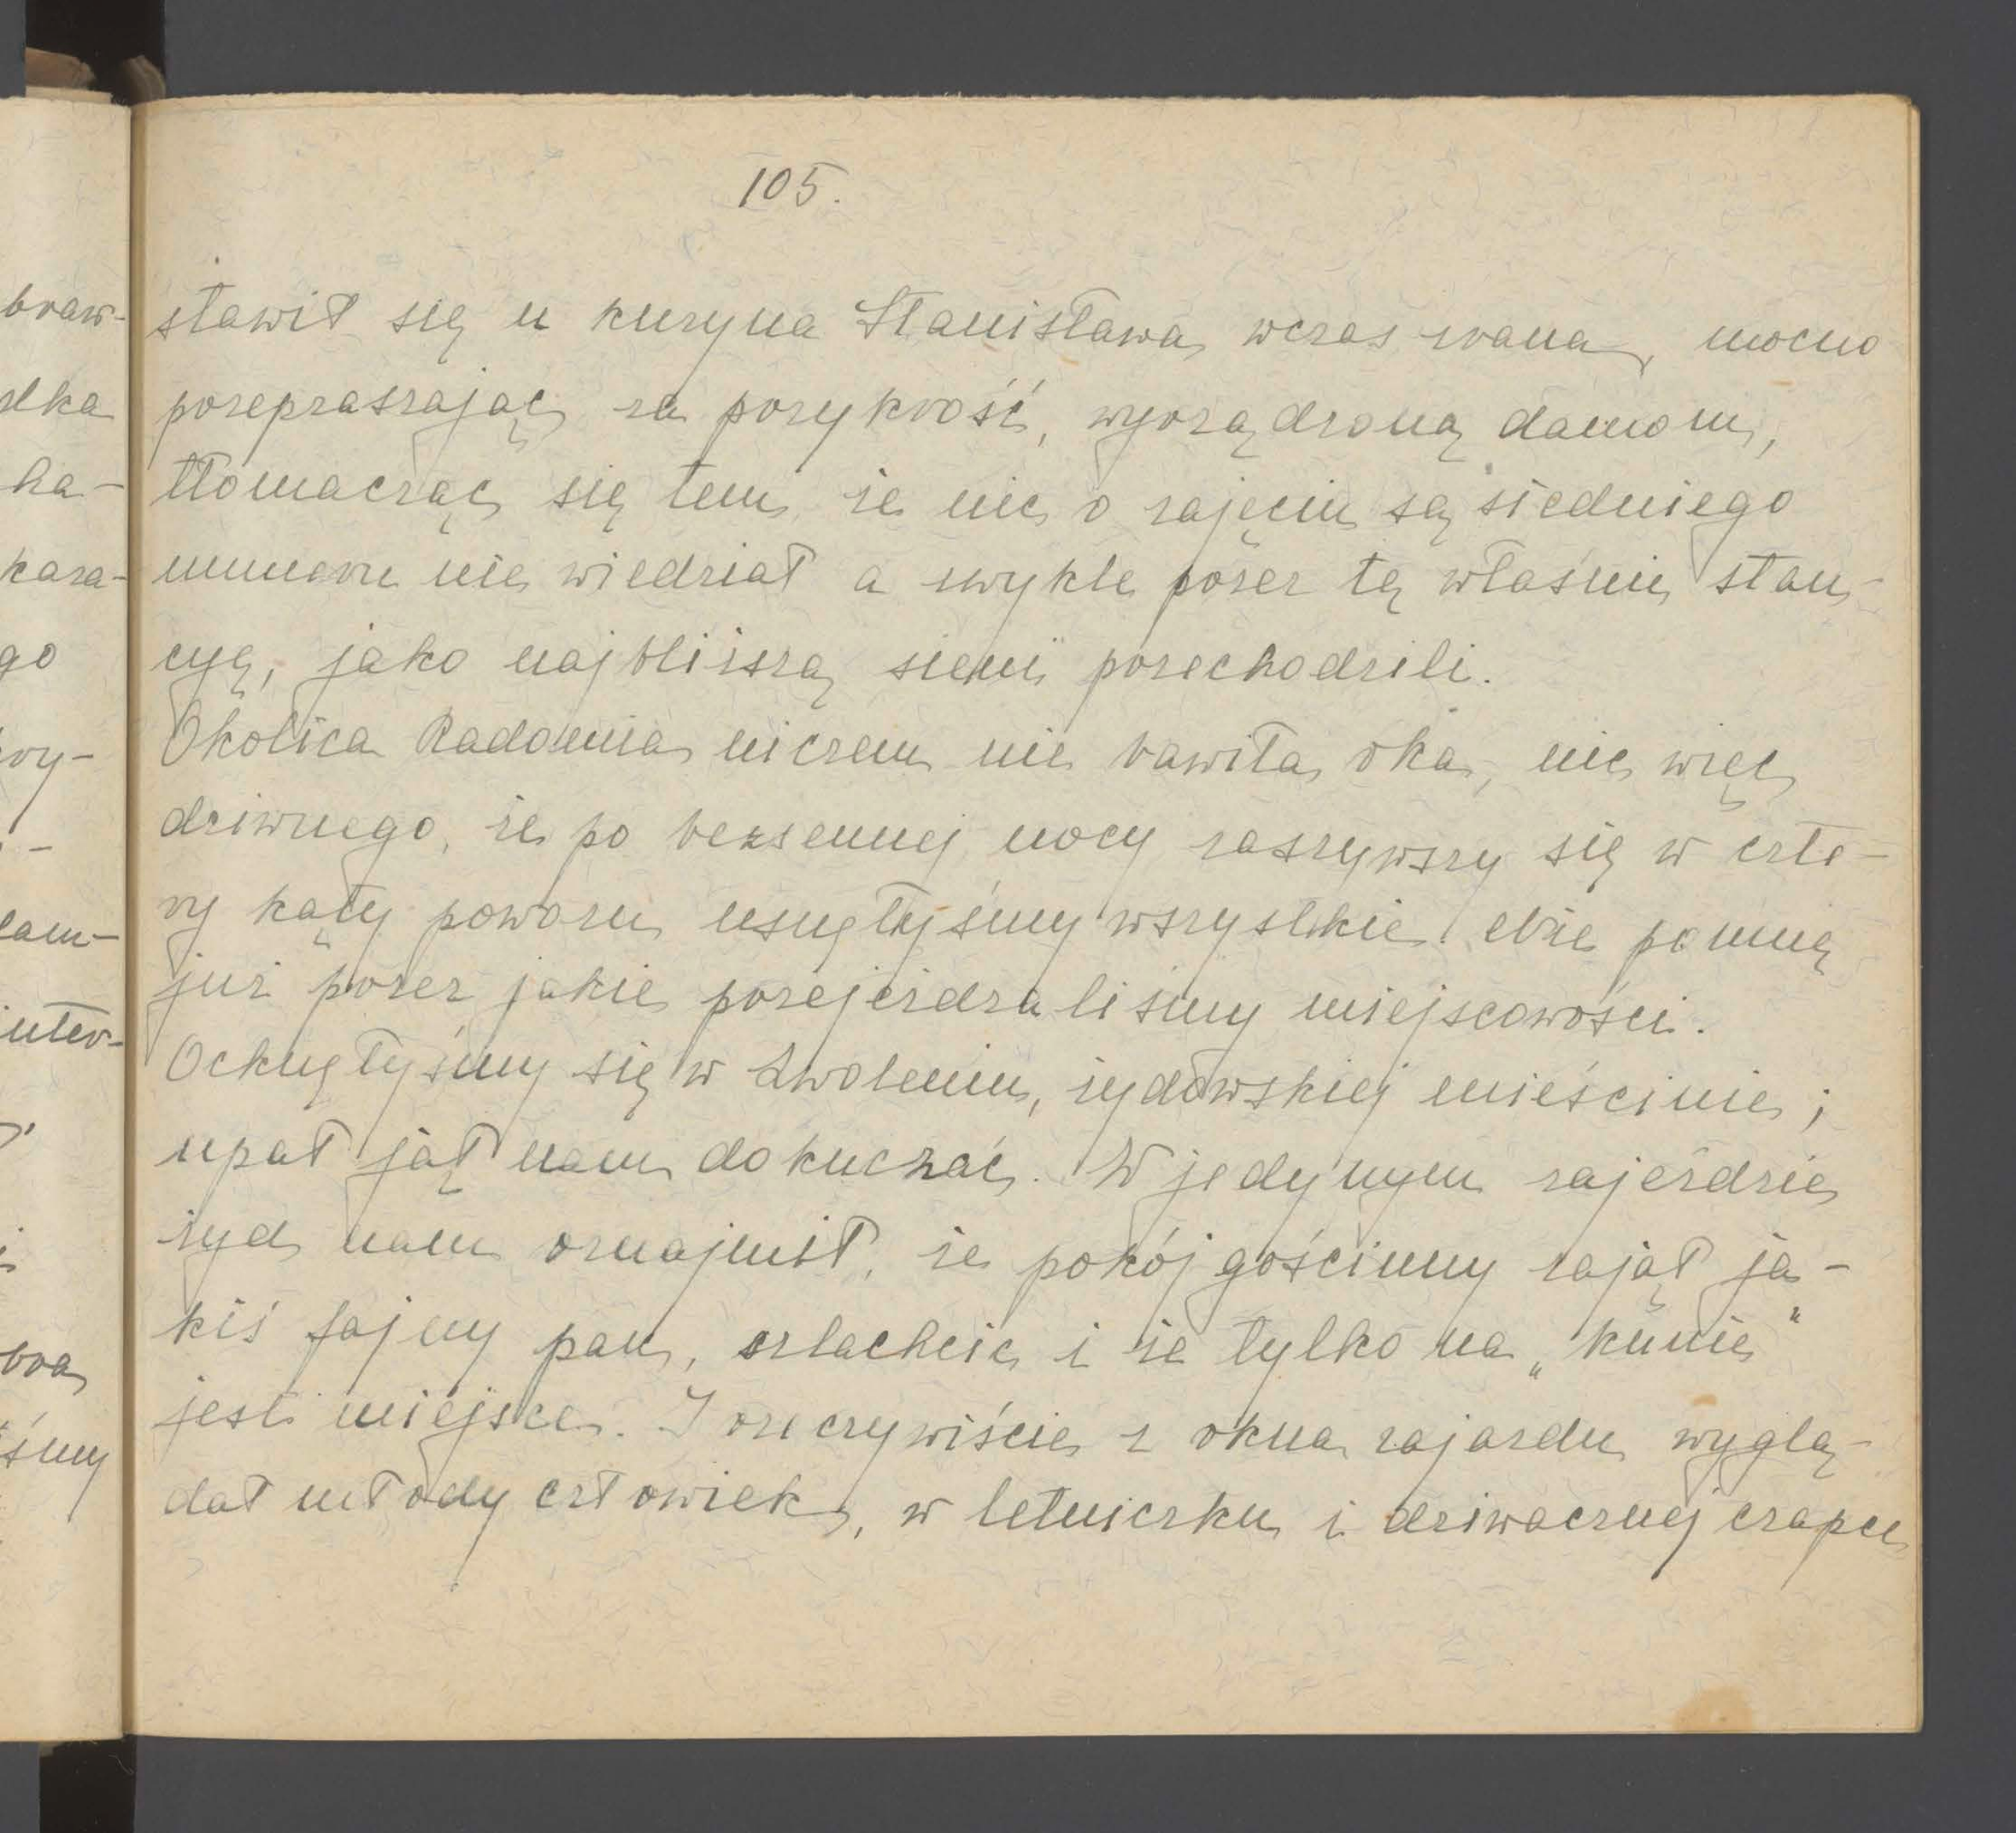 105.
stawił się u kuzyna Stanisława wczas rana, mocno
przepraszając za przykrość, wyrządzoną damom,
tłomacząc się tem, że nic o zajęciu są siedniego
numeru nie wiedział a zwykle przez tę właśnie stan-
cyę, jako najbliższą sieni przechodzili.
Okolica Radomia niczem nie bawiła oka, nic więc
dziwnego, że po bezsennej nocy zaszywszy się w czte-
ry kąty powozu usnęłyśmy wszystkie. Nie pomnę
już przez jakie przejeżdzaliśmy miejscowości.
Ocknęłyśmy się w Zwoleniu, żydowskiej mieścinie;
upał jął nam dokuczać. W jedynym zajeździe
żyd nam oznajmił, że pokój gościnny zajął ja-
kiś fajny pan, szlachcic i że tylko na „kunie"
jest miejsce. I rzeczywiście z okna zajazdu wyglą-
dał młody człowiek, w letniczku i dziwacznej czapce
braw-
ha-
kaza-
go
wy-
łam-
inter-
bra
śmy